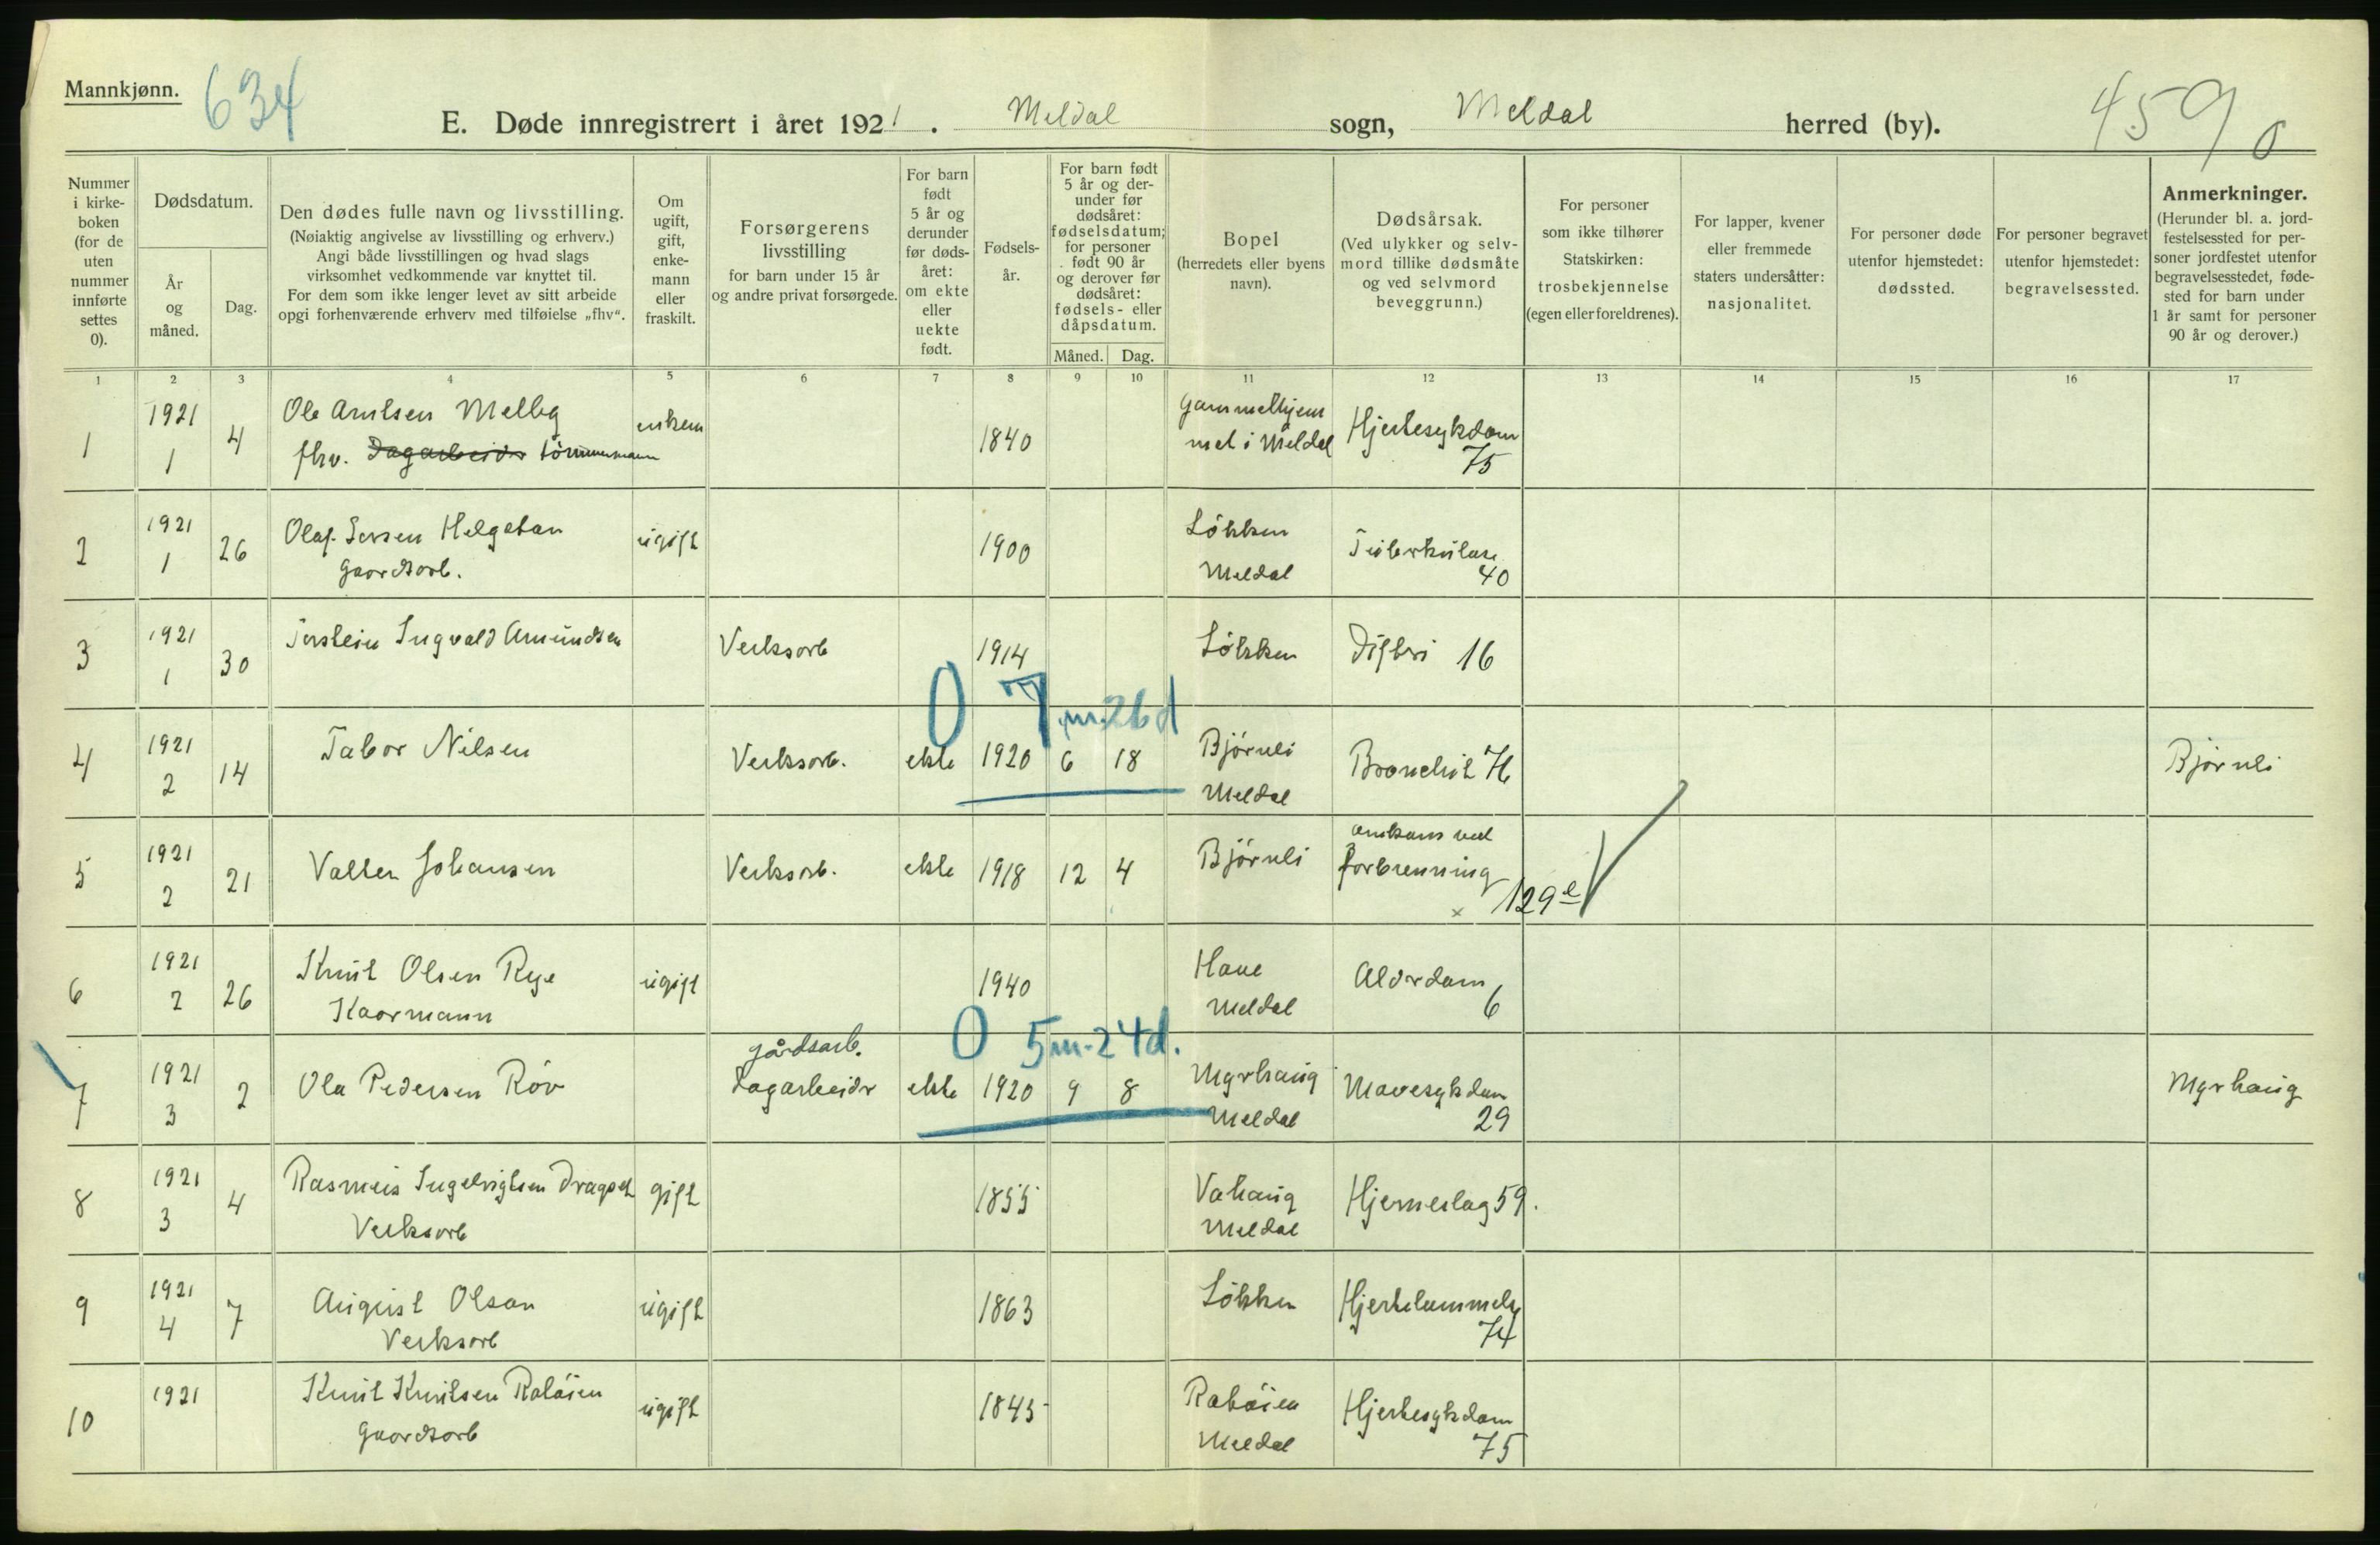 Mannkjønn.
634
E. Døde innregistrert i året 1921. Meldal sogn, Meldal herred (by).
459
0
Nummer i kirkeboken (for de uten nummer innførte settes 0).
Dødsdatum.
År og måned.
Dag.
Den dødes fulle navn og livsstilling.
(Nøiaktig angivelse av livsstilling og erhverv.)
Angi både livsstillingen og hvad slags
virksomhet vedkommende var knyttet til.
For dem som ikke lenger levet av sitt arbeide
opgi forhenværende erhverv med tilføielse „fhv“.
Om ugift, gift, enkemann eller fraskilt.
Forsørgerens livsstilling
for barn under 15 år
og andre privat forsørgede.
For barn født 5 år og derunder før dødsåret: om ekte eller uekte født.
Fødselsår.
For barn født 5 år og derunder før dødsåret: fødselsdatum; for personer født 90 år og derover før dødsåret: fødsels- eller dåpsdatum.
Måned. Dag.
Bopel
(herredets eller byens navn).
Dødsårsak.
(Ved ulykker og selvmord tillike dødsmåte og ved selvmord beveggrunn.)
For personer som ikke tilhører Statskirken: trosbekjennelse (egen eller foreldrenes).
For lapper, kvener eller fremmede staters undersåtter: nasjonalitet.
For personer døde utenfor hjemstedet: dødssted.
For personer begravet utenfor hjemstedet: begravelsessted.
Anmerkninger.
(Herunder bl. a. jordfestelsessted for personer jordfestet utenfor begravelsesstedet, fødested for barn under 1 år samt for personer 90 år og derover.)
1 2 3 4 5 6 7 8 9 10 11 12 13 14 15 16 17
1 1921 1 4 Ole Arntsen Melby enkem 1840 Gammelhjemmet i Meldal Hjertesykdom 75
fhv. Dagarbeider tömmermann
2 1921 1 26 Olaf Helgetan ugift 1900 Lökken Meldal Tuberkulose 40
Gaardsarb.
3 1921 1 30 Torstein Ingvald Amundsen Verksarb 1914 Lökken Difteri 16
0 7 m. 26 d
4 1921 2 14 Tabor Nilsen Verksarb. ekte 1920 6 18 Björnli Meldal Bronchit 76 Björnli
5 1921 2 21 Valter Johansen Verksarb. ekte 1918 12 4 Björnli omkom ved forbrenning 129 e
6 1921 2 26 Knut Olsen Rye ugift 1940 Meldal Alderdom 6
Kaarmann
0 5 m. 24 d.
7 1921 3 2 Ola Pedersen Röv gårdsarb. Dagarbeider ekte 1920 9 8 Myrhaug Meldal Mavesykdom 29 Myrhaug
8 1921 3 4 Rasmus Ingebrigtsen Dragset gift 1855 Vahaug Meldal Hjerneslag 59.
Verksarb
9 1921 4 7 August Olsan ugift 1863 Lökken Hjertelammelse 74
Verksarb
10 1921 Knut Knutsen Raböien ugift 1845 Raböien Meldal Hjertesykdom 75
Gaardsarb